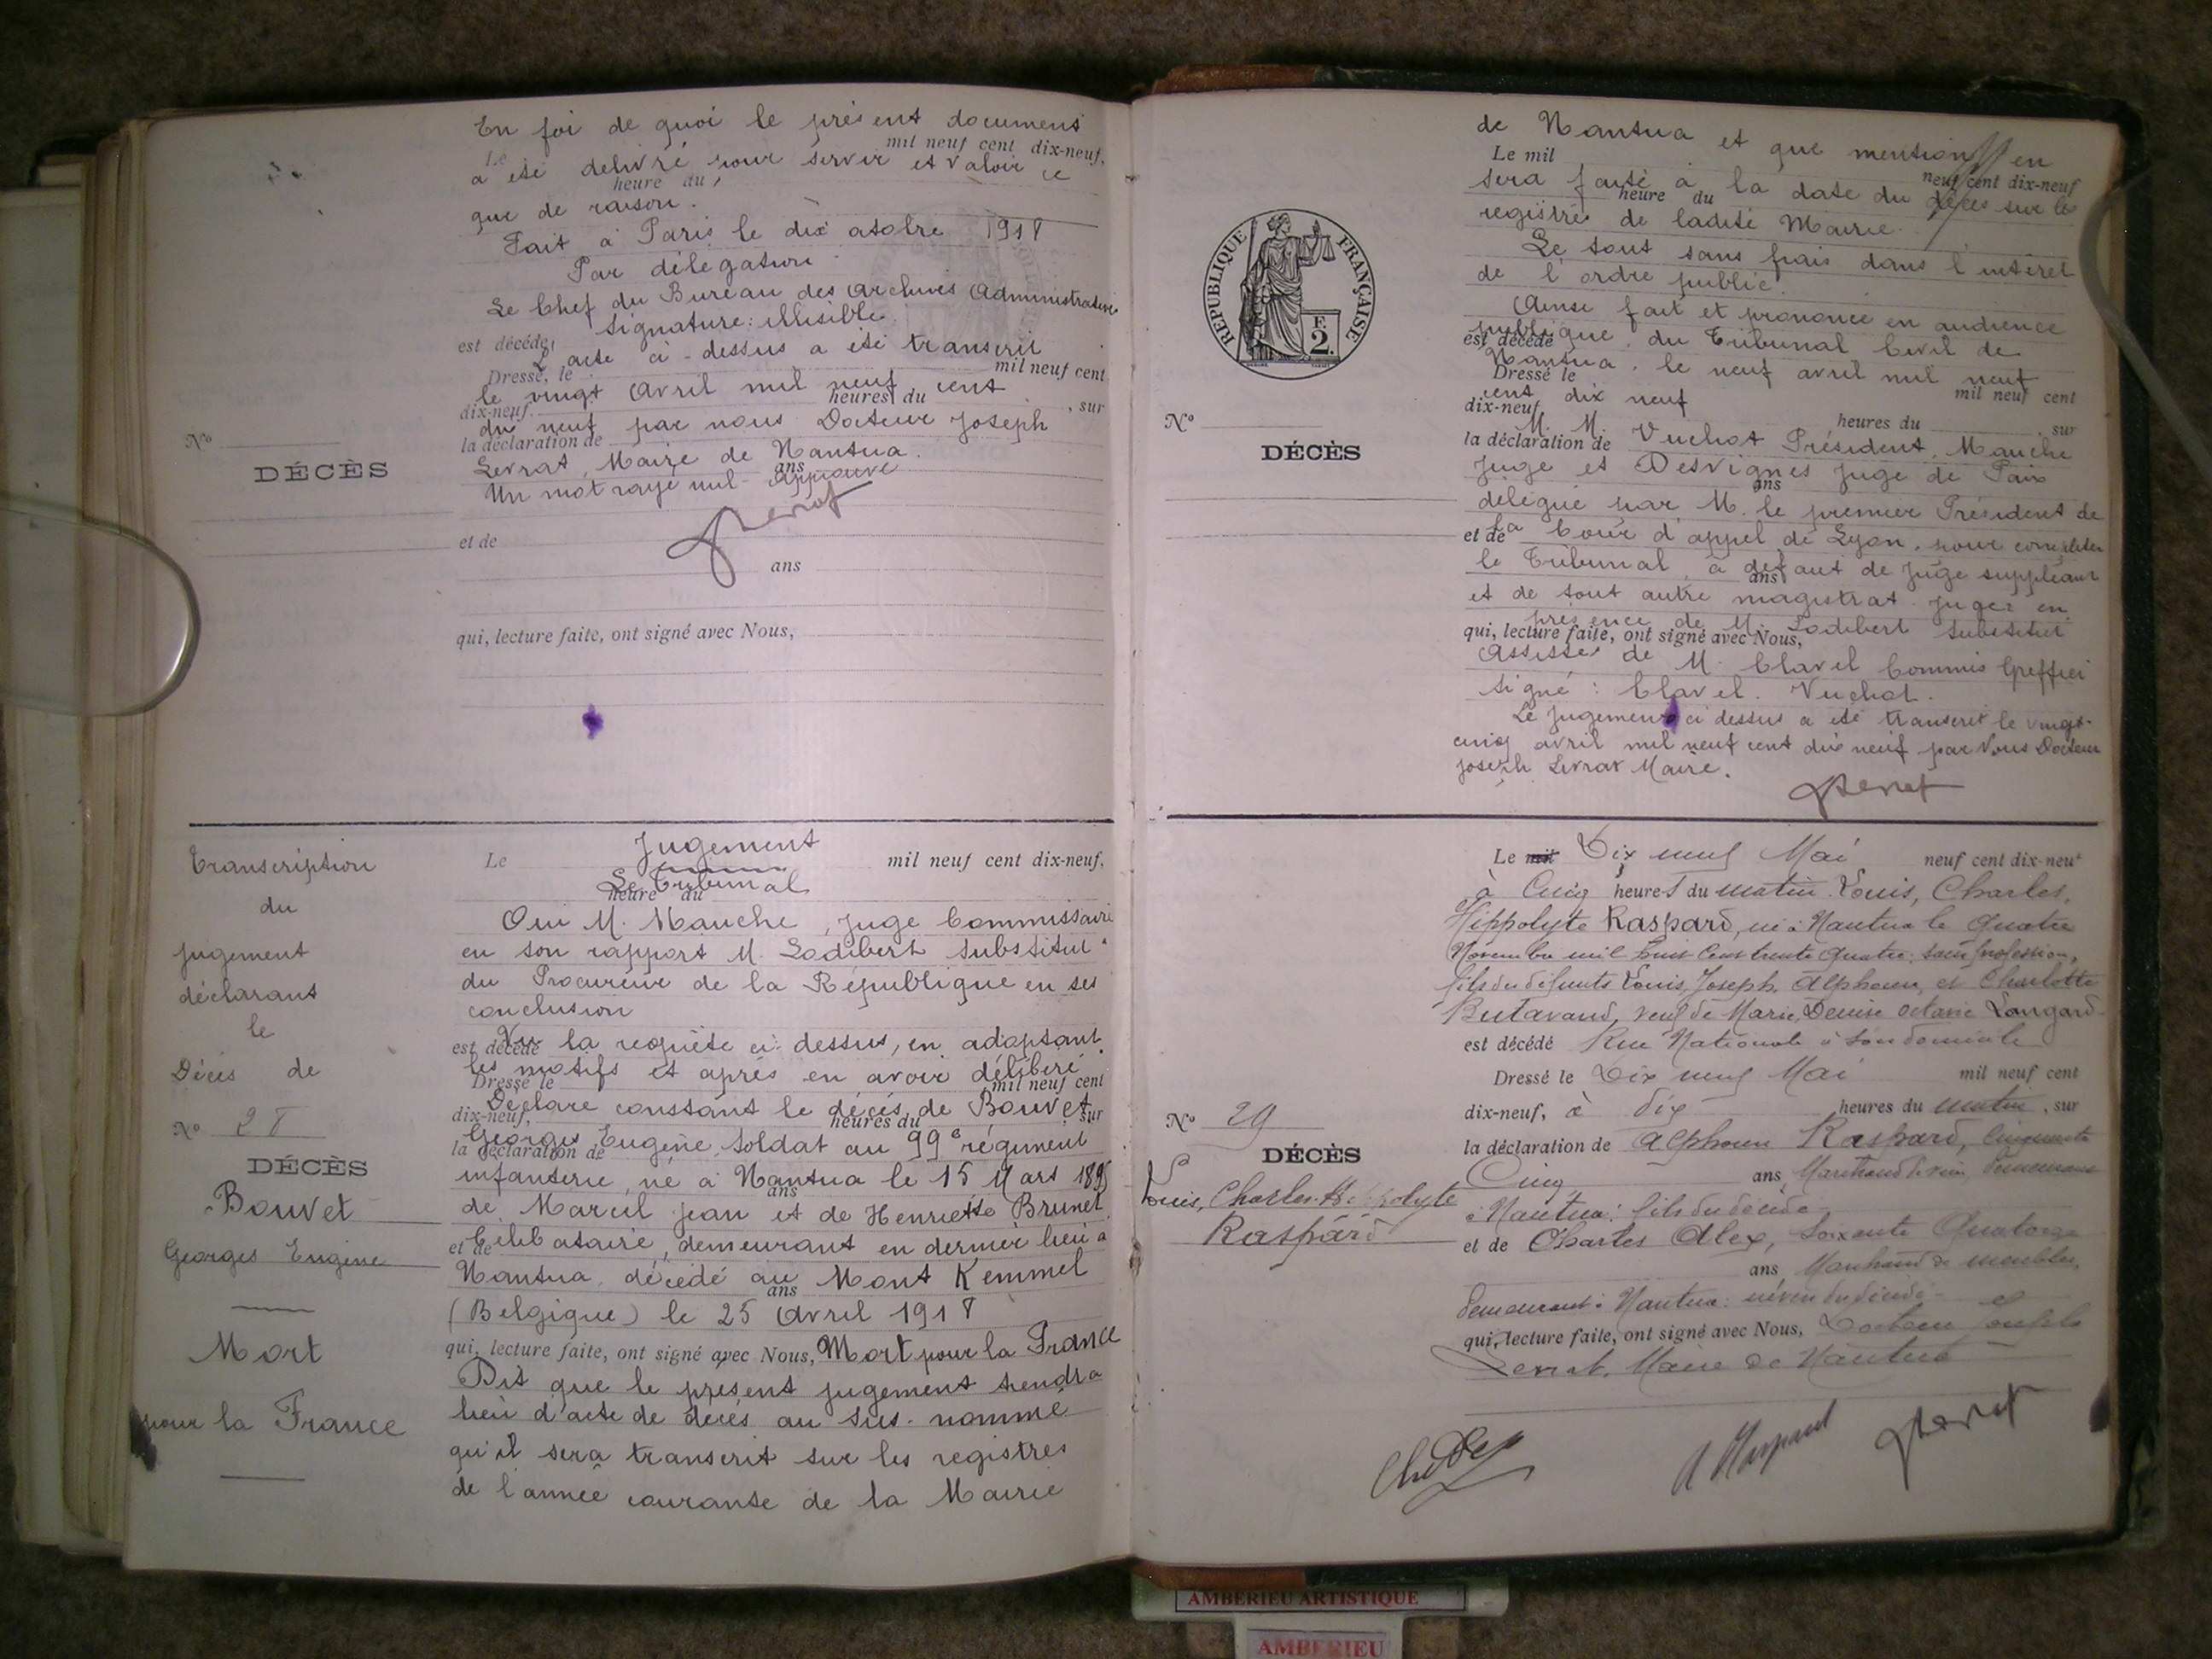 En foi de quoi le présent document
Le mil neuf cent dix-neuf,
a été délivré pour servir et valoir ce
heure du
que de raison.
Fait à Paris le dix octobre 1918
Par délégation.
Le Chef du Bureau des Archives Administratives
Signature: illisible
est décédé,
L'acte ci-dessus a été transcrit
Dressé, le mil neuf cent
le vingt Avril mil neuf cent
dix-neuf, heures du , sur
dix neuf par nous Docteur Joseph
la déclaration de
Levrat, Maire de Nantua.
ans
Un mot rayé nul - Approuvé
Nº
DÉCÈS
et de
ans
qui, lecture faite, ont signé avec Nous,
Transcription
du
jugement
déclarant
le
Décès de
Nº 28
DÉCÈS
Bouvet
Georges Eugène
Mort
pour la France
Jugement
Le mil neuf cent dix-neuf,
Le Tribunal
heure du
Oui M. Mauche, Juge Commissaire
en son rapport M. Lodibert Substitut
du Procureur de la République en ses
conclusion
Vu la requête ci-dessus, en adoptant
est décédé
les motifs et après en avoir délibéré
Dressé le mil neuf cent
Déclare constant le décès de Bouvet
dix-neuf, heures du sur
Georges Eugène, Soldat au 99e régiment
la déclaration de
infanterie, né à Nantua le 15 Mars 1895
ans
de Marcil Jean et de Henriette Brunet
Célibataire, demeurant en dernier lieu à
et de
Nantua, décédé au Mont Kemmel
ans
(Belgique) le 25 Avril 1918
qui, lecture faite, ont signé avec Nous, Mort pour la France
Dit que le présent jugement tiendra
lieu d'acte de décès au sus-nommé
qu'il sera transcrit sur les registres
de l'année courante de la Mairie
de Nantua et que mention en
Le mil neuf cent dix-neuf
sera faite à la date du décès sur les
heure du
registres de ladite Mairie.
Le tout sans frais dans l'intérêt
de l'ordre public.
Ainsi fait et prononcé en audience
publique du Tribunal Civil de
est décédé
Nantua, le neuf avril mil neuf
Dressé le mil neuf cent
cent dix neuf
dix-neuf, heures du , sur
M. M. Vuchot Président, Mauche
la déclaration de
Juge et Desvignes Juge de Paix
ans
délégué par M. le premier Président de
la Cour d'appel de Lyon, pour compléter
et de
le Tribunal, à défaut de Juge suppléant
ans
et de tout autre magistrat. Juger en
présence de M. Lodibert Substitut
qui, lecture faite, ont signé avec Nous,
Assistés de M. Clavel Commis Greffier
Signé: Clavel. Vuchot.
Le Jugement ci dessus a été transcrit le vingt-
cinq avril mil neuf cent dix neuf par Nous Docteur
Joseph Levrat Maire.
RÉPUBLIQUE FRANÇAISE
F.
2.
Nº
DÉCÈS
Nº 29
DÉCÈS
Louis, Charles Hippolyte
Raspard
Le mil Dix neuf Mai neuf cent dix-neuf
à Cinq heures du matin. Louis, Charles,
Hippolyte Raspard, né à Nantua le Quatre
Novembre mil huit cent trente quatre, sans profession,
fils du défunts Louis, Joseph, Alphonse, et Charlotte
Butavand, veuf de Marie, Denise Octavie Langard
est décédé Rue Nationale à son domicile
Dressé le Dix neuf Mai mil neuf cent
dix-neuf, à dix heures du matin, sur
la déclaration de Alphonse Raspard, Cinquante
Cinq ans, Marchand de vin, demeurant
à Nantua: fils du décédé
et de Charles Alex, Soixante Quatorze
ans, Marchand de meubles,
demeurant à Nantua: neveu du décédé
qui, lecture faite, ont signé avec Nous, Docteur Joseph
Levrat, Maire de Nantua
AMBERIEU ARTISTIQUE
AMBERIEU